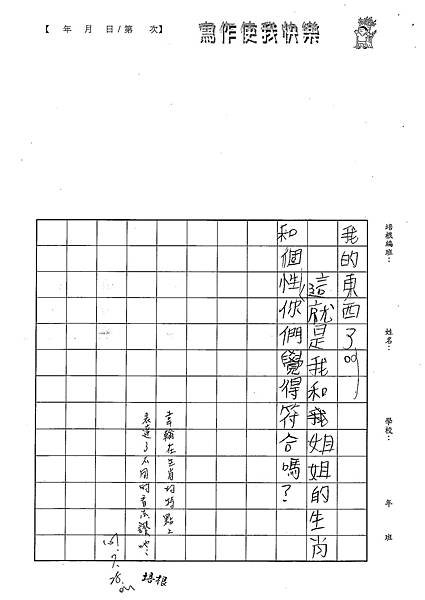 【 年 月 日/第 次】
寫作使我快樂
培根編班：
姓名：
學校：
年 班
我的東西了。
這就是我和我姐姐的生肖
和個性，你們覺得符合嗎？
在生肖的特點上
表達了不同的看法讚
培根